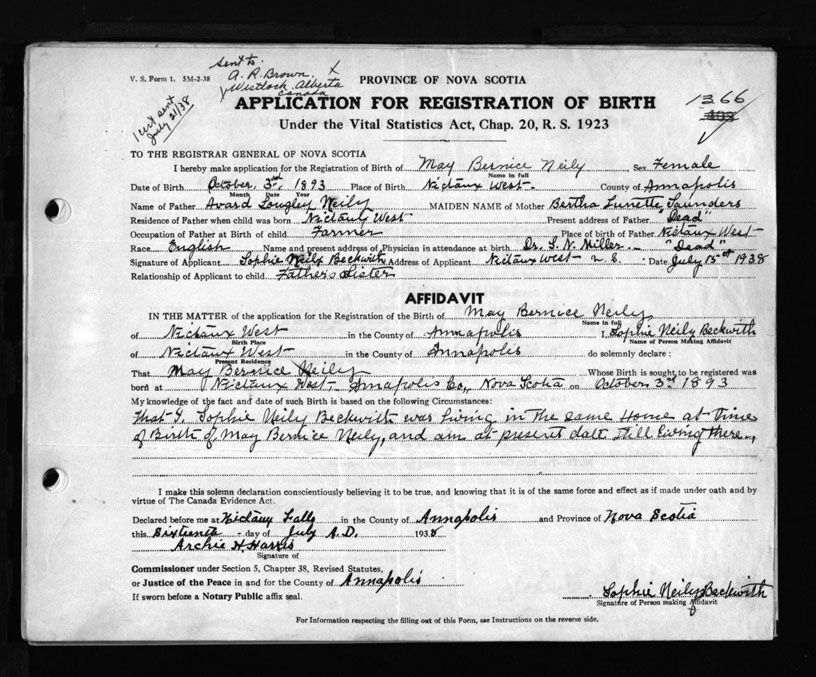 V. S. Form 1. 5M-2-38
sent to
A. R. Brown. x
Westlock Alberta
Canada
1 cert sent
July 21/38
PROVINCE OF NOVA SCOTIA
APPLICATION FOR REGISTRATION OF BIRTH
1366
Under the Vital Statistics Act, Chap. 20, R. S. 1923
TO THE REGISTRAR GENERAL OF NOVA SCOTIA
I hereby make application for the Registration of Birth of May Bernice Neily Sex Female
Name in full
Date of Birth October, 3rd, 1893 Place of Birth Nictaux West. County of Annapolis
Month Date Year
Name of Father Avard Longley Neily MAIDEN NAME of Mother Bertha Lunette Saunders
Residence of Father when child was born Nictaux West Present address of Father "Dead"
Occupation of Father at Birth of child Farmer Place of birth of Father Nictaux West
Race English Name and present address of Physician in attendance at birth Dr. S. N. Miller. "Dead"
Signature of Applicant Sophie Neily Beckwith Address of Applicant Nictaux West N.S. Date July 15th 1938
Relationship of Applicant to child Father's Sister
AFFIDAVIT
IN THE MATTER of the application for the Registration of the Birth of May Bernice Neily
Name in full
of Nictaux West in the County of Annapolis I, Sophie Neily Beckwith
Birth Place Name of Person Making Affidavit
of Nictaux West in the County of Annapolis do solemnly declare:
Present Residence
That May Bernice Neily Whose Birth is sought to be registered was
born at Nictaux West. Annapolis Co., Nova Scotia on October 3rd 1893
My knowledge of the fact and date of such Birth is based on the following Circumstances:
That I, Sophie Neily Beckwith was living in the same Home at time
of Birth of May Bernice Neily, and am at present date still living there.
I make this solemn declaration conscientiously believing it to be true, and knowing that it is of the same force and effect as if made under oath and by
virtue of The Canada Evidence Act.
Declared before me at Nictaux Falls in the County of Annapolis and Province of Nova Scotia
this Sixteenth day of July A.D. 1938
Archie H. Harris
Signature of
Commissioner under Section 5, Chapter 38, Revised Statutes,
or Justice of the Peace in and for the County of Annapolis
If sworn before a Notary Public affix seal.
Sophie Neily Beckwith
Signature of Person making Affidavit
For Information respecting the filling out of this Form, see Instructions on the reverse side.